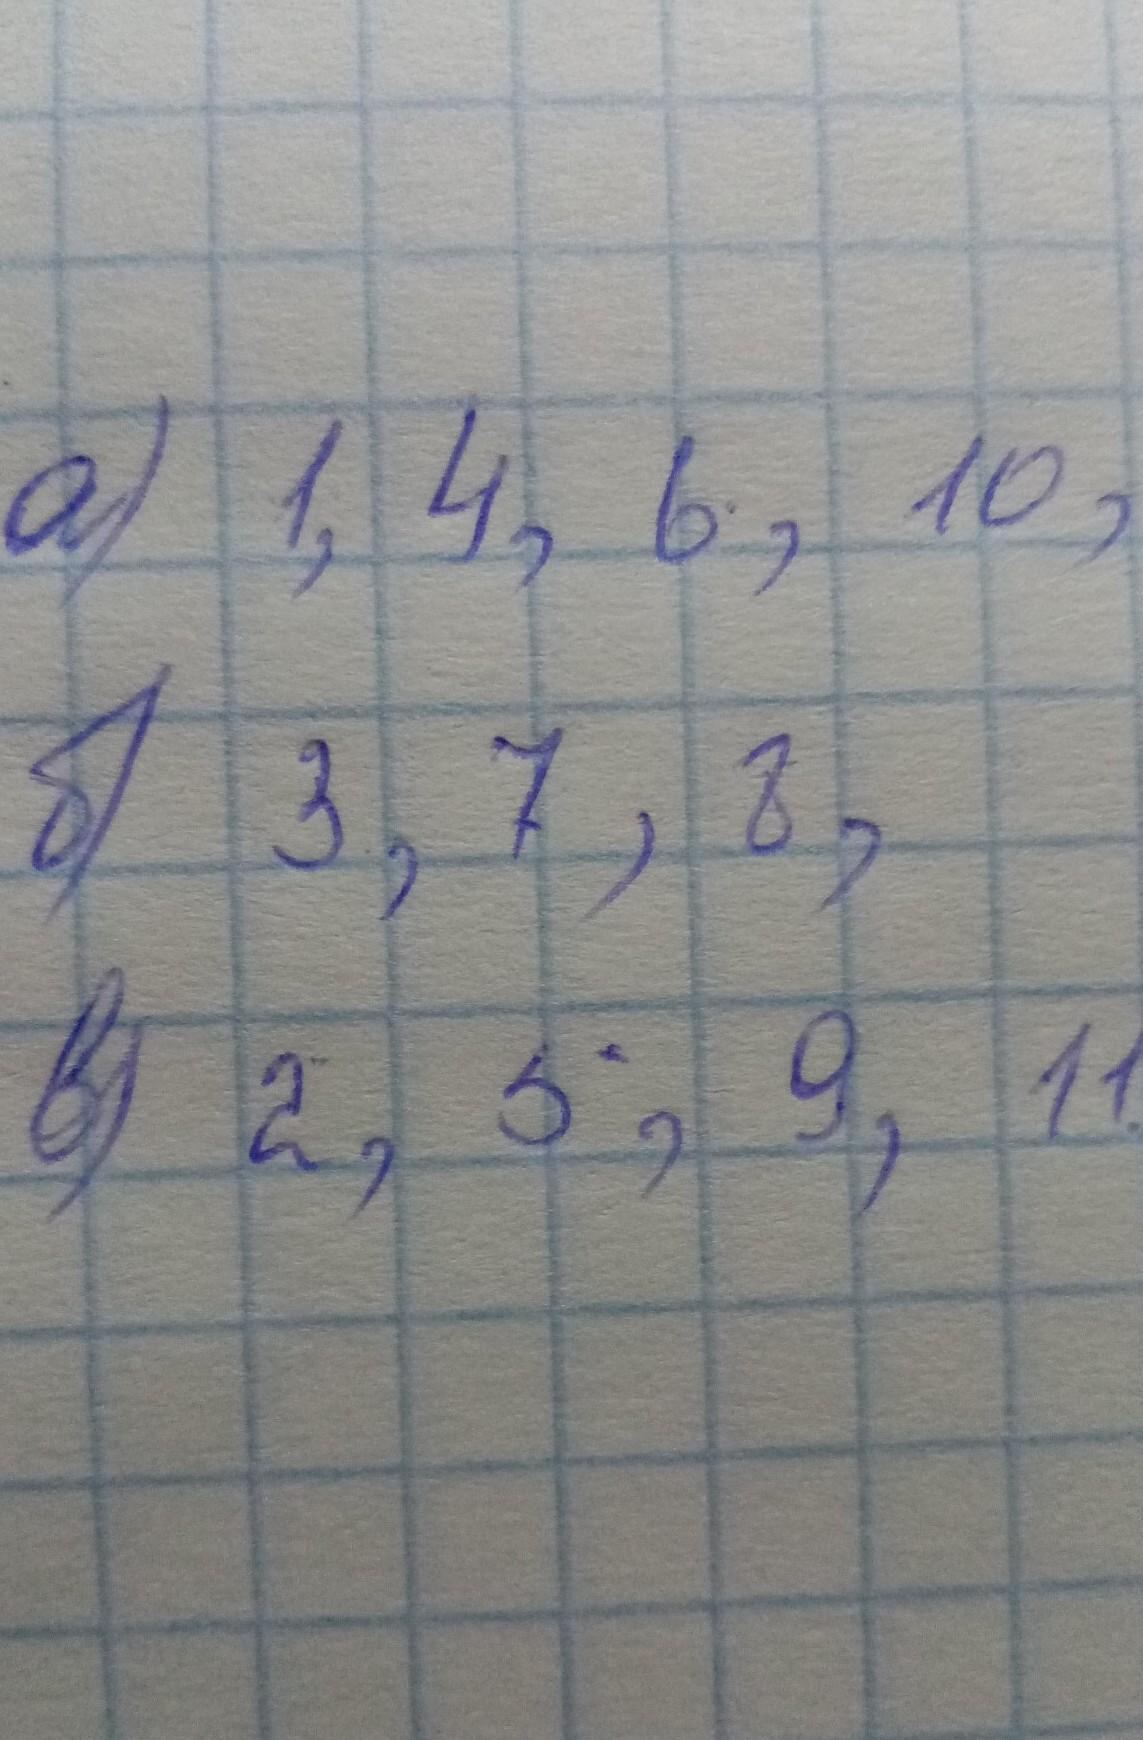 а) 1, 4, 6, 10,
б) 3, 7, 8,
в) 2, 5, 9, 11.